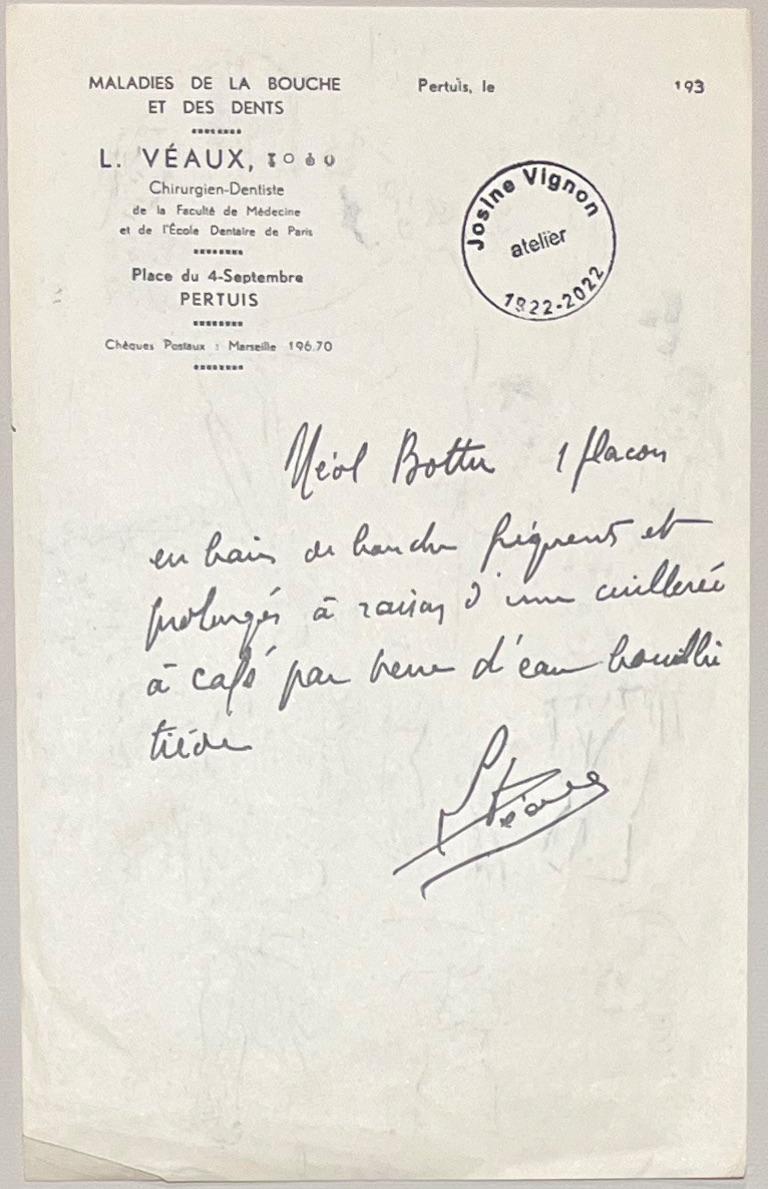 MALADIES DE LA BOUCHE
ET DES DENTS
L. VÉAUX,
Chirurgien-Dentiste
de la Faculté de Médecine
et de l'École Dentaire de Paris
Place du 4-Septembre
PERTUIS
Chèques Postaux : Marseille 196.70
Pertuis, le 193
Josine Vignon
atelier
1922-2022
Néol Bottu 1 flacon
en bains de bouche fréquents et
prolongés à raison d'une cuillerée
à café par verre d'eau bouillie
tiède
L Véaux